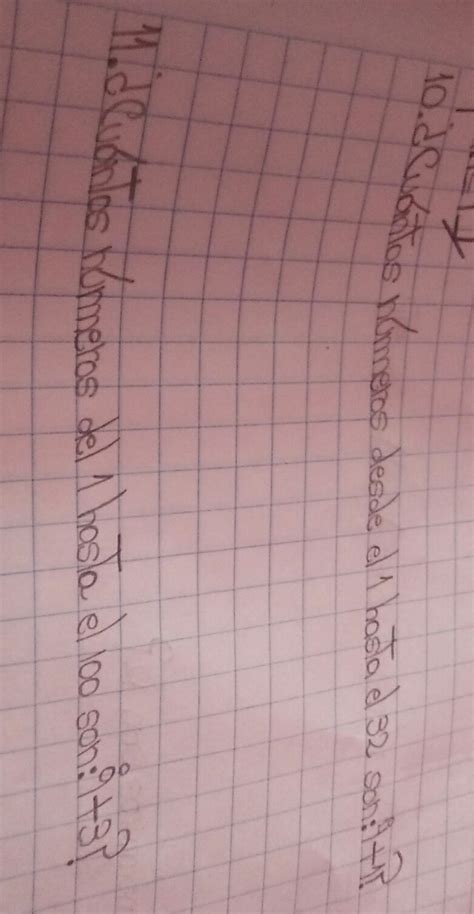 10. ¿Cuántos números desde el 1 hasta el 32 son:
11. ¿Cuántos números del 1 hasta el 100 son: 9̊+3?